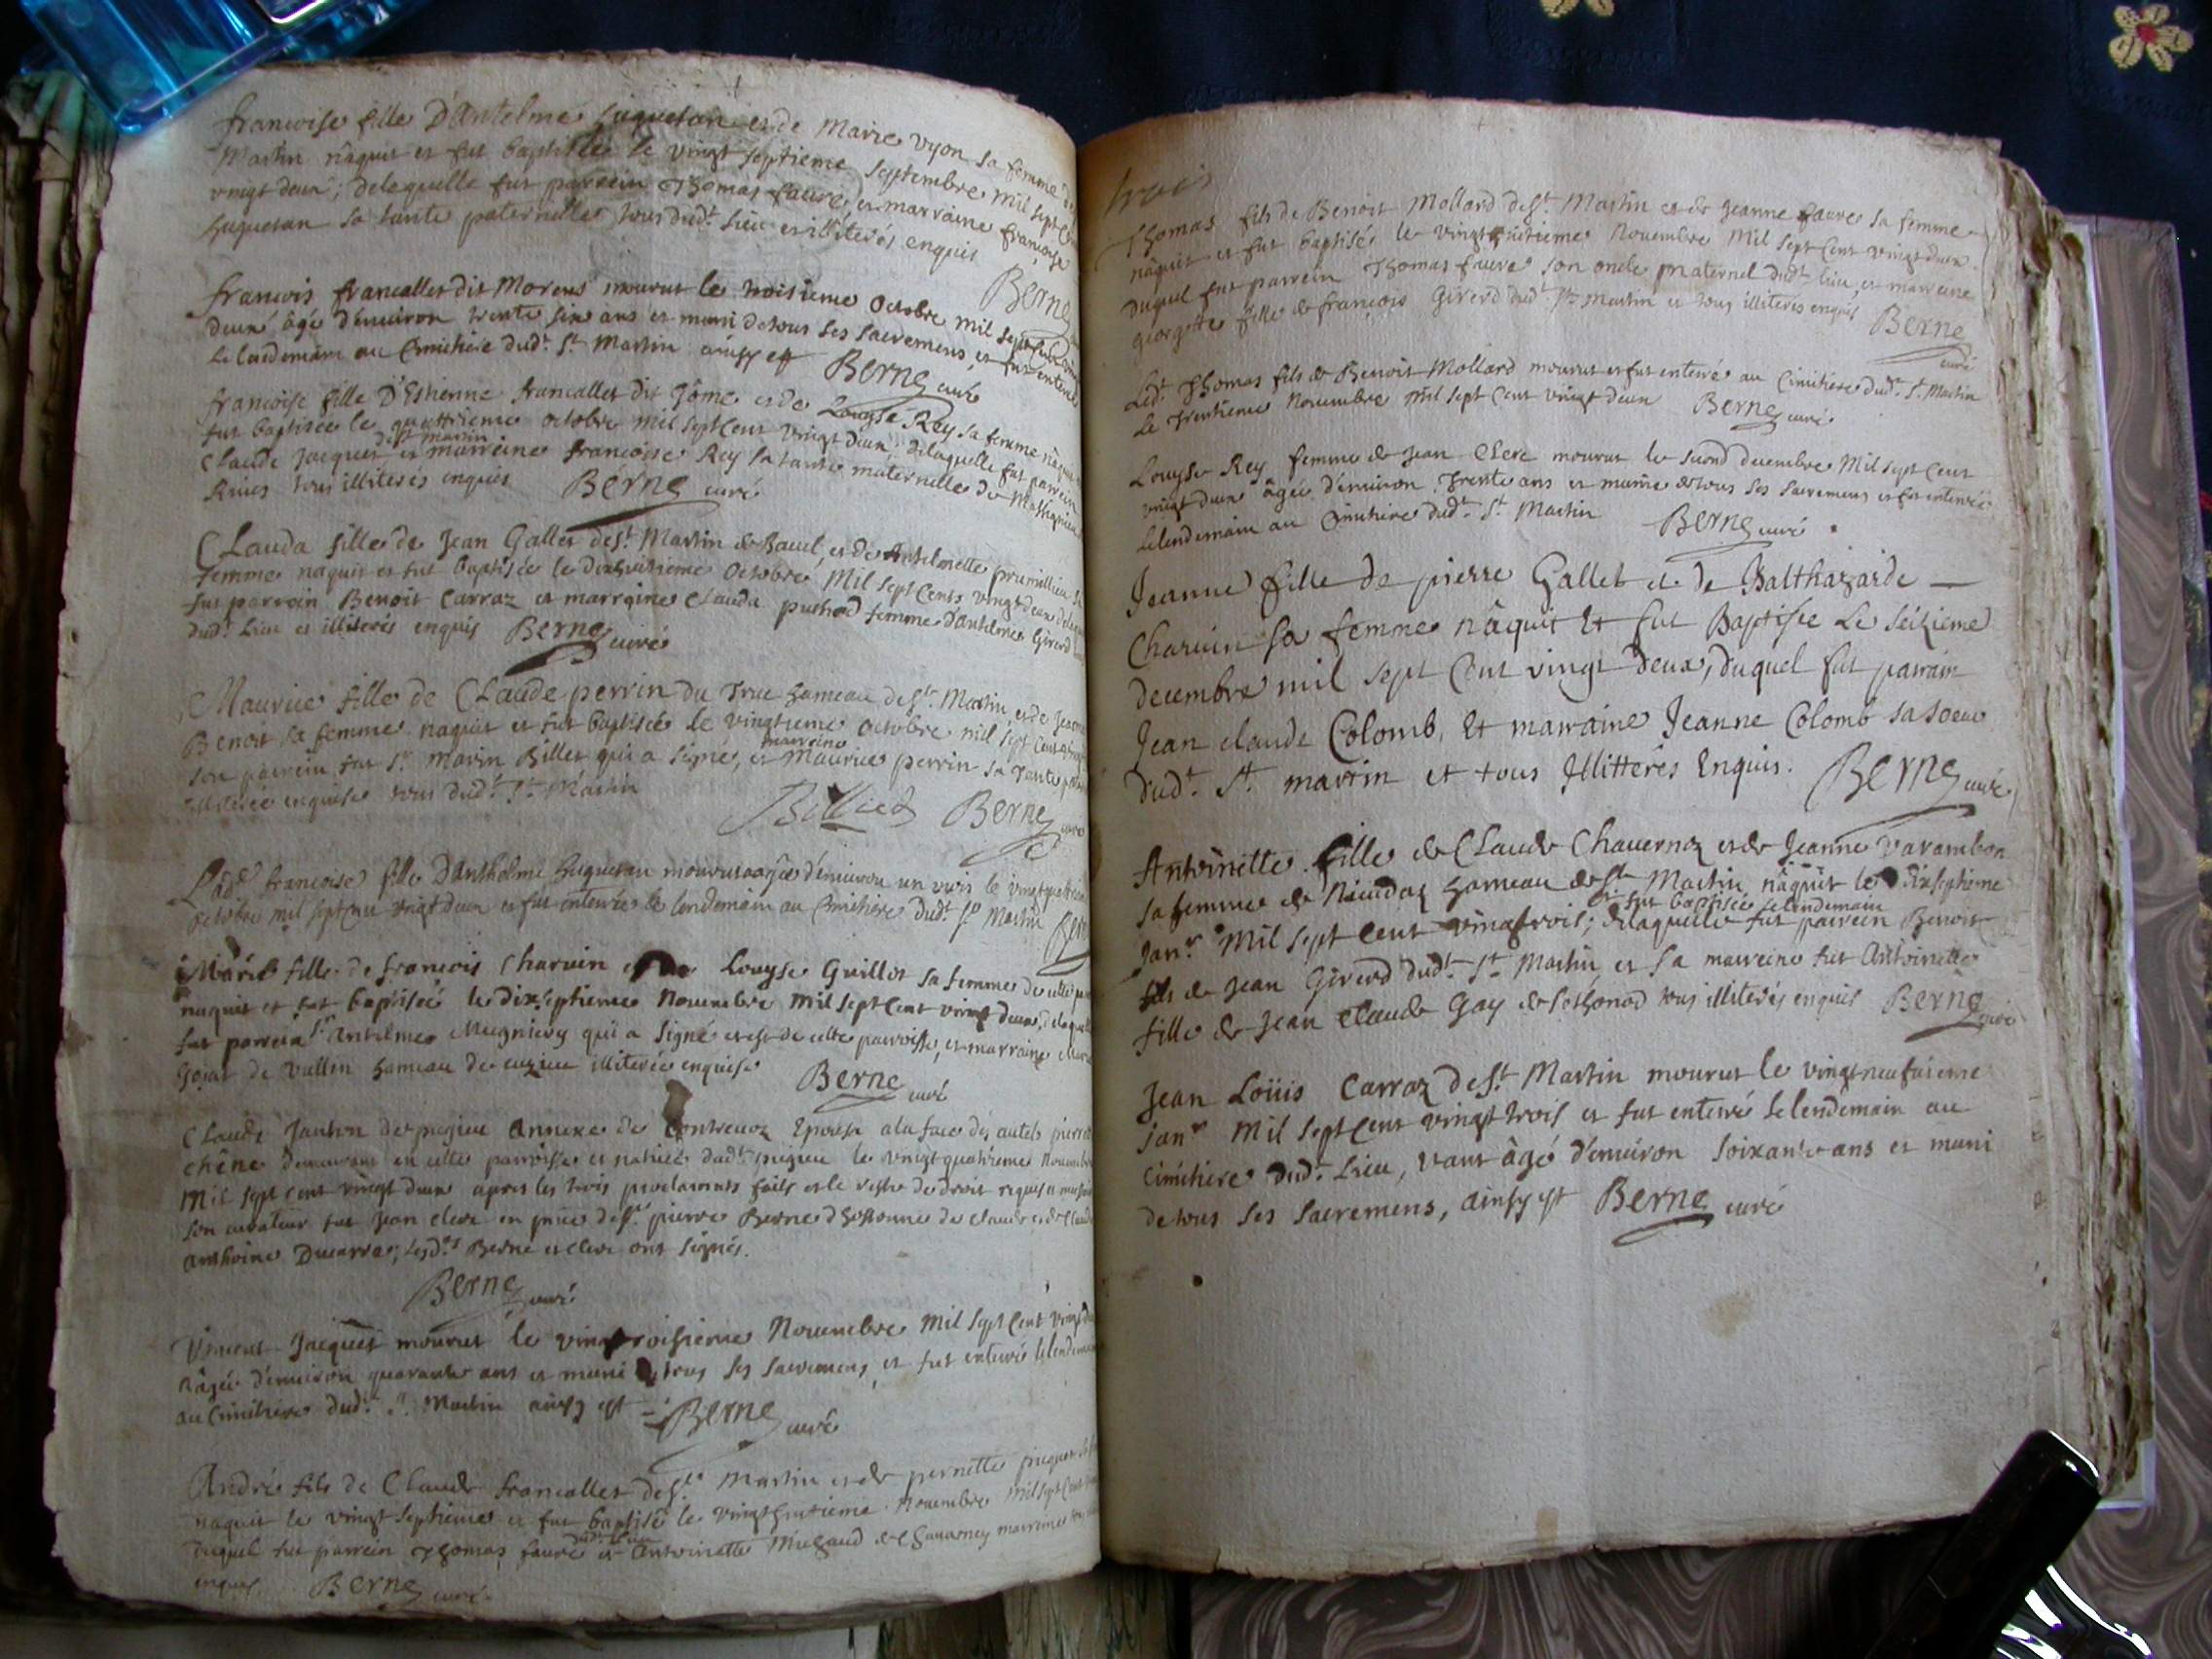 francoise fille D'Antelme huguetan et de Marie vyon sa femme
Martin nâquit et fut baptisée le vingt septieme septembre mil sept Cent
vingt deux; delaquelle fut parrein Thomas faure, et marraine françoise
huguetan sa tante paternelle tous dudt. lieu et illiterés enquis
Berne
francois francallet dit Morens mourut le troisieme octobre mil sept Cent vingt
deux âgé d'environ trente six ans et muni de tous ses sacremens, et fut enterré
le lendemain au Cimithiere dudt. St. Martin ainsy est Berne curé
francoise fille D'Estienne francallet dit Jôme et de Louyse Rey sa femme nâquit et
fut baptisée le quattrieme octobre mil sept Cent vingt deux; delaquelle fut parrein
de st martin
Claude Jacquet et marreine francoise Rey sa tante maternelle de
Rives tous illiterés enquis Berne curé
Clauda fille de Jean Gallet de St. Martin de Bavel, et de Antelmette prumillieu sa
femme naquit et fut baptisée le dixhuitieme octobre Mil sept Cents vingt deux
fut parrein Benoit Carraz et marraine Clauda puthod femme d'Antelme Girerd
dudt. Lieu et illiterés enquis Berne curé
Maurice fille de Claude perrin du Truc hameau de St. Martin et de Jeanne
Benoit sa femme naquit et fut baptisée le vingtieme octobre mil sept Cent vingt
son parrein fut Sr. Marin Billiet qui a signé, et Maurice perrin sa tante
marreine
illiterée enquise tous dudt. St. Martin
Billiet Berne curé
Ladt. francoise fille D'Anthelme huguetan mourut âgée d'environ un mois le vingt quatrieme
octobre mil sept Cent vingt deux et fut enterrée le lendemain au Cimithiere dudt. St Martin
Marie fille de francois Charvin et de Louyse Guillot sa femme de cette
naquit et fut baptisée le dixseptieme Novembre Mil sept Cent vingt deux, delaquelle
fut parrein Sr. Antelme Mugnievy qui a signé et est de cette parroisse, et marraine Marie
Gojat de Vullin hameau de cuzieu illiterée enquise Berne curé
Claude Janton de pugieu annexe de Contrevoz Epousa a la face des autels pierrette
Chêne demeurant en cette parroisse et native dudt. pugieu le vingt quatrieme Novembre
Mil sept cent vingt deux apres les trois proclamats faits et le reste de droit requis
son curateur fut Jean clerc en pnce de Sr. pierre Berne d'hostonne de claude et de Claude
anthoine Ducarre; lesdts. Berne et Clerc ont signés.
Berne curé
Vincent Jacquet mourut le vingtroisieme Novembre Mil sept Cent vingt deux
âgé d'environ quarante ans et muni de tous ses sacremens, et fut enterré le lendemain
au Cimithiere dudt. St. Martin ainsy est Berne curé
André fils de Claude francallet de St. Martin et de pernette
naquit le vingt septieme et fut baptisé le vingt huitieme Novembre Mil sept Cent
dudt. lieu
duquel fut parrein Thomas faure et Antoinette Michaud de Chavarney marreine
enquis Berne curé
trois
Thomas fils de Benoit Mollard de St. Martin et de Jeanne faure sa femme
nâquit et fut baptisé le vingt huitieme Novembre Mil sept Cent vingt deux
duquel fut parrein Thomas faure son oncle maternel dudt. lieu, et marreine
georgette fille de françois Girerd dudt. St. martin et tous illiterés enquis
Berne
curé
Ledt. Thomas fils de Benoit Mollard mourut et fut enterré au Cimithiere dudt. St. Martin
Le Trentieme Novembre Mil sept Cent vingt deux Berne curé
Louyse Rey femme de Jean Clerc mourut le second decembre Mil sept Cent
vingt deux âgée d'environ Trente ans et munie de tous ses sacremens et fut enterrée
le lendemain au Cimithiere dudt. St. Martin Berne curé
Jeanne fille de pierre Gallet et de Balthazarde
Charvin sa femme nâquit Et fut Baptisée Le seizieme
decembre mil sept Cent vingt deux, duquel fut parrain
Jean claude Colomb, Et marraine Jeanne Colomb sa soeur
dudt. St. martin et tous Illitterés Enquis. Berne curé
Antoinette fille de Claude Chavernoz et de Jeanne varambon
sa femme de Nieudaz hameau de St. Martin nâquit le dixseptieme
et fut baptisée le lendemain
Janr. Mil sept Cent vingtrois; delaquelle fut parrein Benoit
fils de Jean Girerd dudt. St Martin et sa marreine fut Antoinette
fille de Jean Claude Gay de Sothonod tous illiterés enquis Berne curé
Jean Loüis Carraz de St. Martin mourut le vingtneufvieme
janr. Mil sept Cent vingt trois et fut enterré le lendemain au
Cimithiere dudt. Lieu, etant âgé d'environ soixante ans et muni
de tous ses sacremens, ainsy est Berne curé